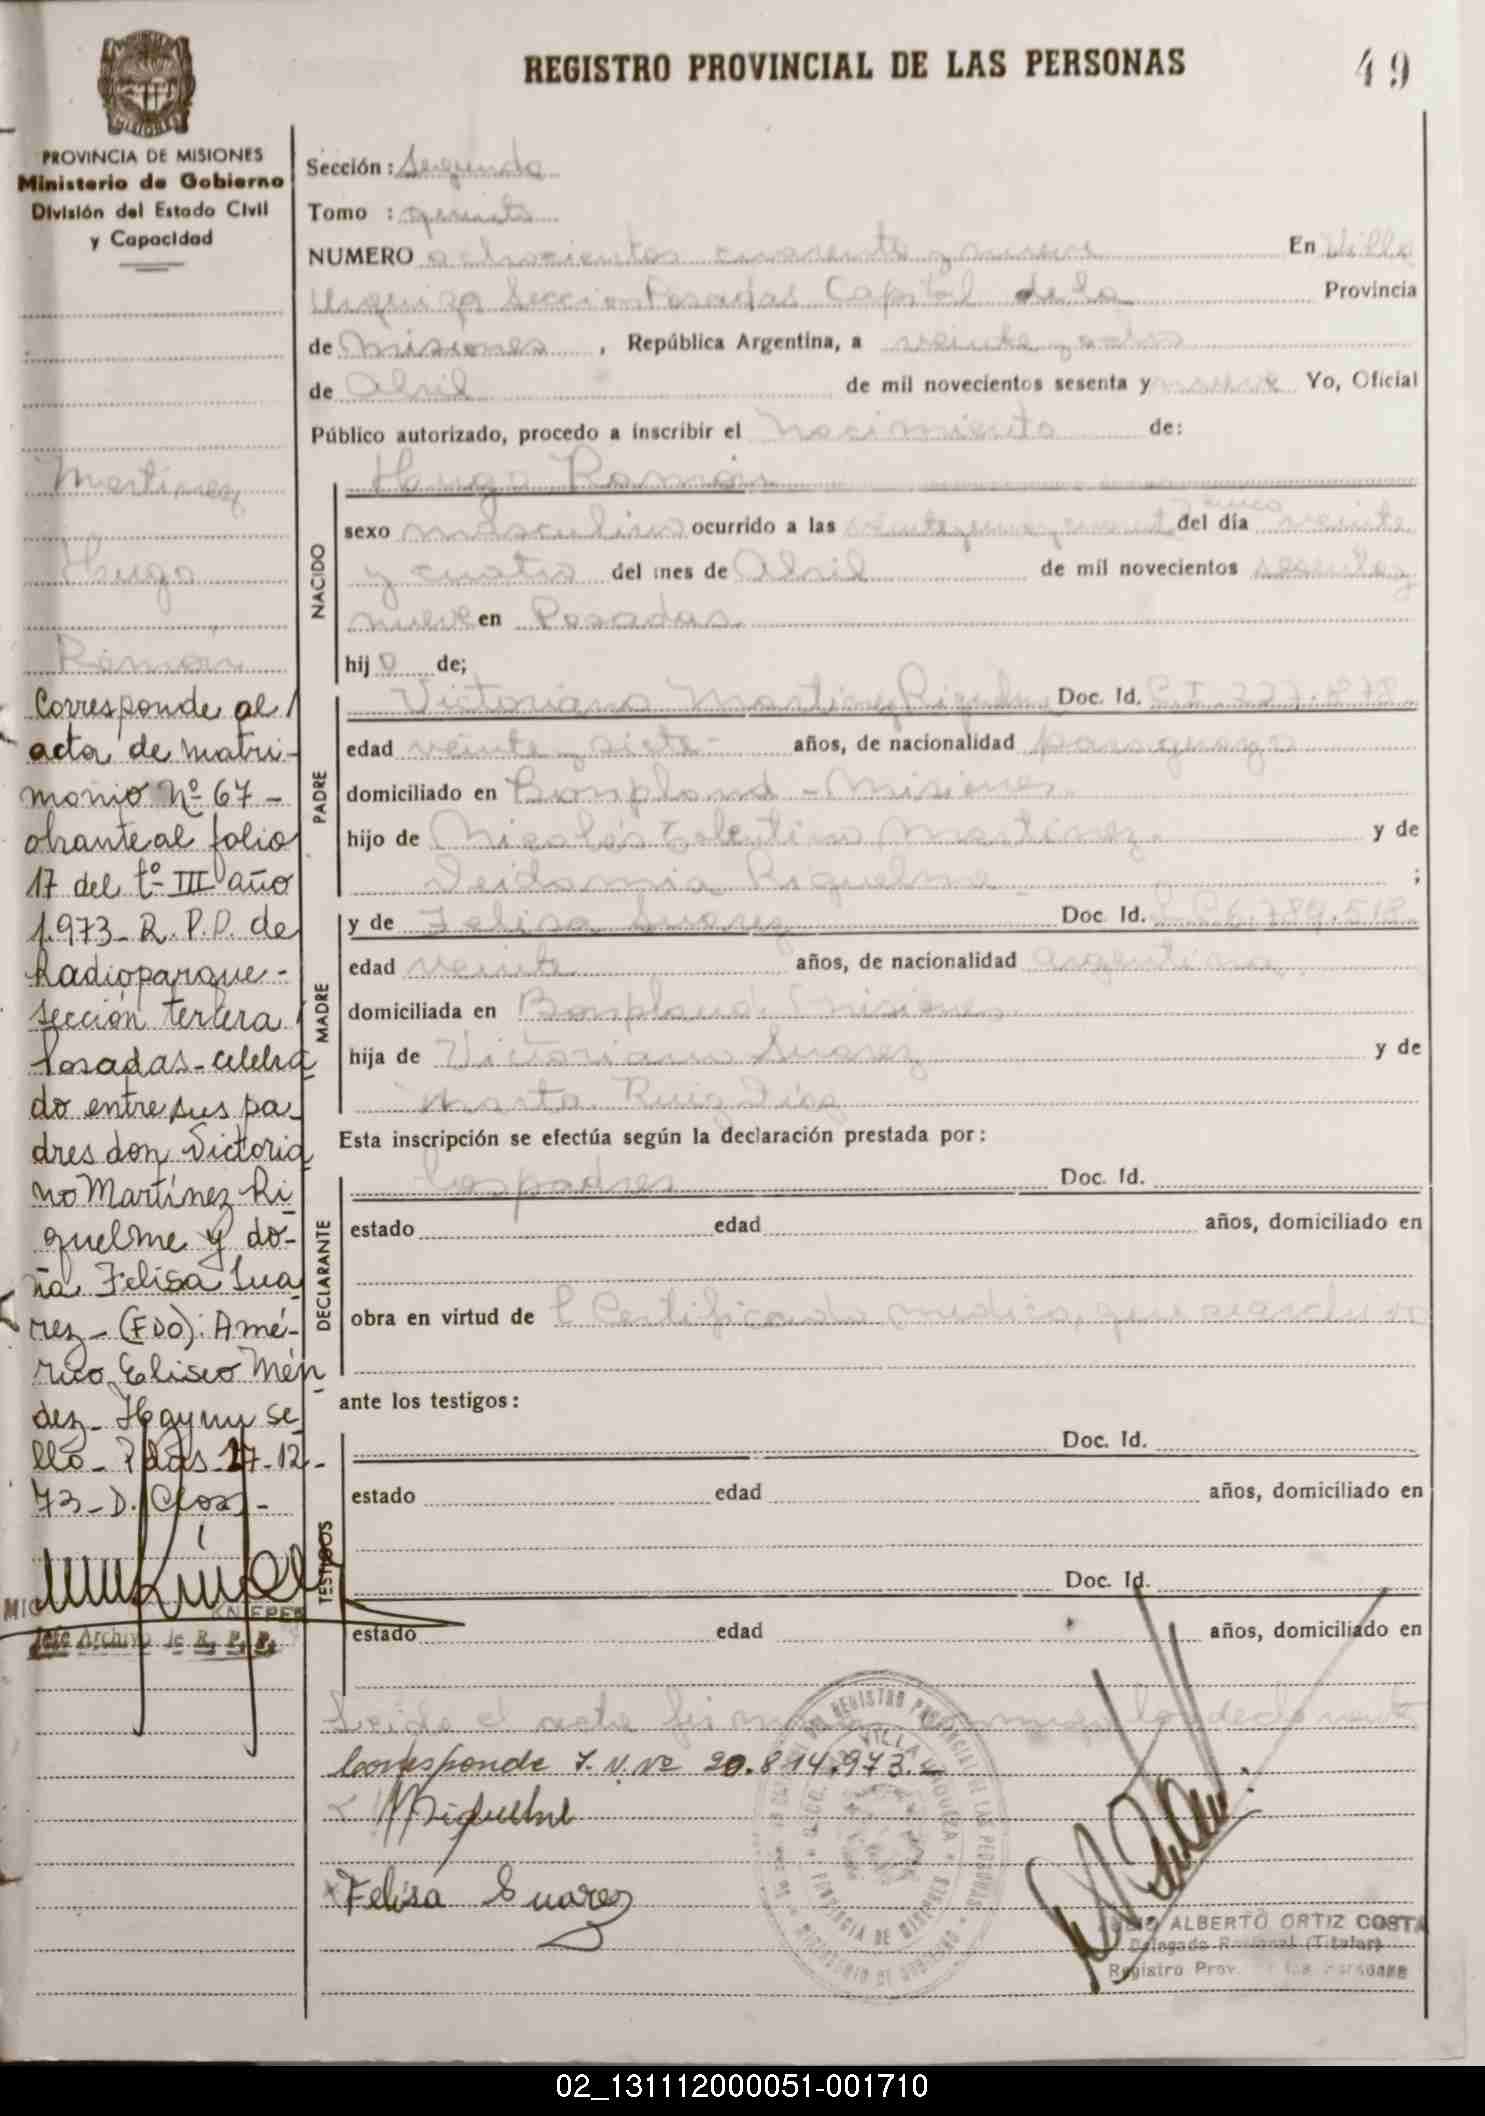 REGISTRO PROVINCIAL DE LAS PERSONAS
49
MISIONES
PROVINCIA DE MISIONES
Ministerio de Gobierno
División del Estado Civil
y Capacidad
Martinez
Hugo
Ramón
Corresponde al
acta de matri-
monio Nº 67 -
obrante al folio
17 del tº III año
1.973 - R. P. P. de
Radioparque -
sección tercera
Posadas - celebra
do entre sus pa
dres don Victoria
no Martínez Ri
quelme y do-
ña Felisa Sua
rez - (FDO): Amé-
rico Eliseo Mén
dez - Hay un se
llo - Pdas 27-12-
73 - D. Closs -
KNIEPER
Jefe Archivo de R. P. P.
Sección : Segunda
Tomo : quinto
NUMERO ochocientos cuarenta y nueve En Villa
Urquiza Seccion Posadas Capital de la Provincia
de Misiones , República Argentina, a veinte y ocho
de Abril de mil novecientos sesenta y nueve Yo, Oficial
Público autorizado, procedo a inscribir el nacimiento de:
NACIDO
Hugo Ramón
sexo masculino ocurrido a las cinco del día veinte
y cuatro del mes de Abril de mil novecientos sesenta y
nueve en Posadas
hijo de;
PADRE
Victoriano Martinez Riquelme Doc. Id. C.I. 227.878
edad veinte y siete - años, de nacionalidad paraguayo
domiciliado en Bonpland - Misiones
hijo de Nicolás Tolentino Martinez y de
Deidamia Riquelme ;
MADRE
y de Felisa Suarez Doc. Id. L.C 6.789.518
edad veinte años, de nacionalidad argentina
domiciliada en Bonpland Misiones
hija de Victoriano Suarez y de
Marta Ruiz Diaz
Esta inscripción se efectúa según la declaración prestada por:
DECLARANTE
Los padres Doc. Id.
estado edad años, domiciliado en
obra en virtud de C Certificado medico, que se archiva
ante los testigos:
TESTIGOS
Doc. Id.
estado edad años, domiciliado en
Doc. Id.
estado edad años, domiciliado en
Leida el acta firman los declarantes
Corresponde I. N. Nº 20.814.973.-
MRiquelme
Felisa Suarez
REGISTRO PROVINCIAL DE LAS PERSONAS
VILLA URQUIZA
PROVINCIA DE MISIONES
MINISTERIO DE GOBIERNO
ALBERTO ORTIZ COSTA
Delegado Regional (Titular)
Registro Prov. de las Personas
02_131112000051-001710